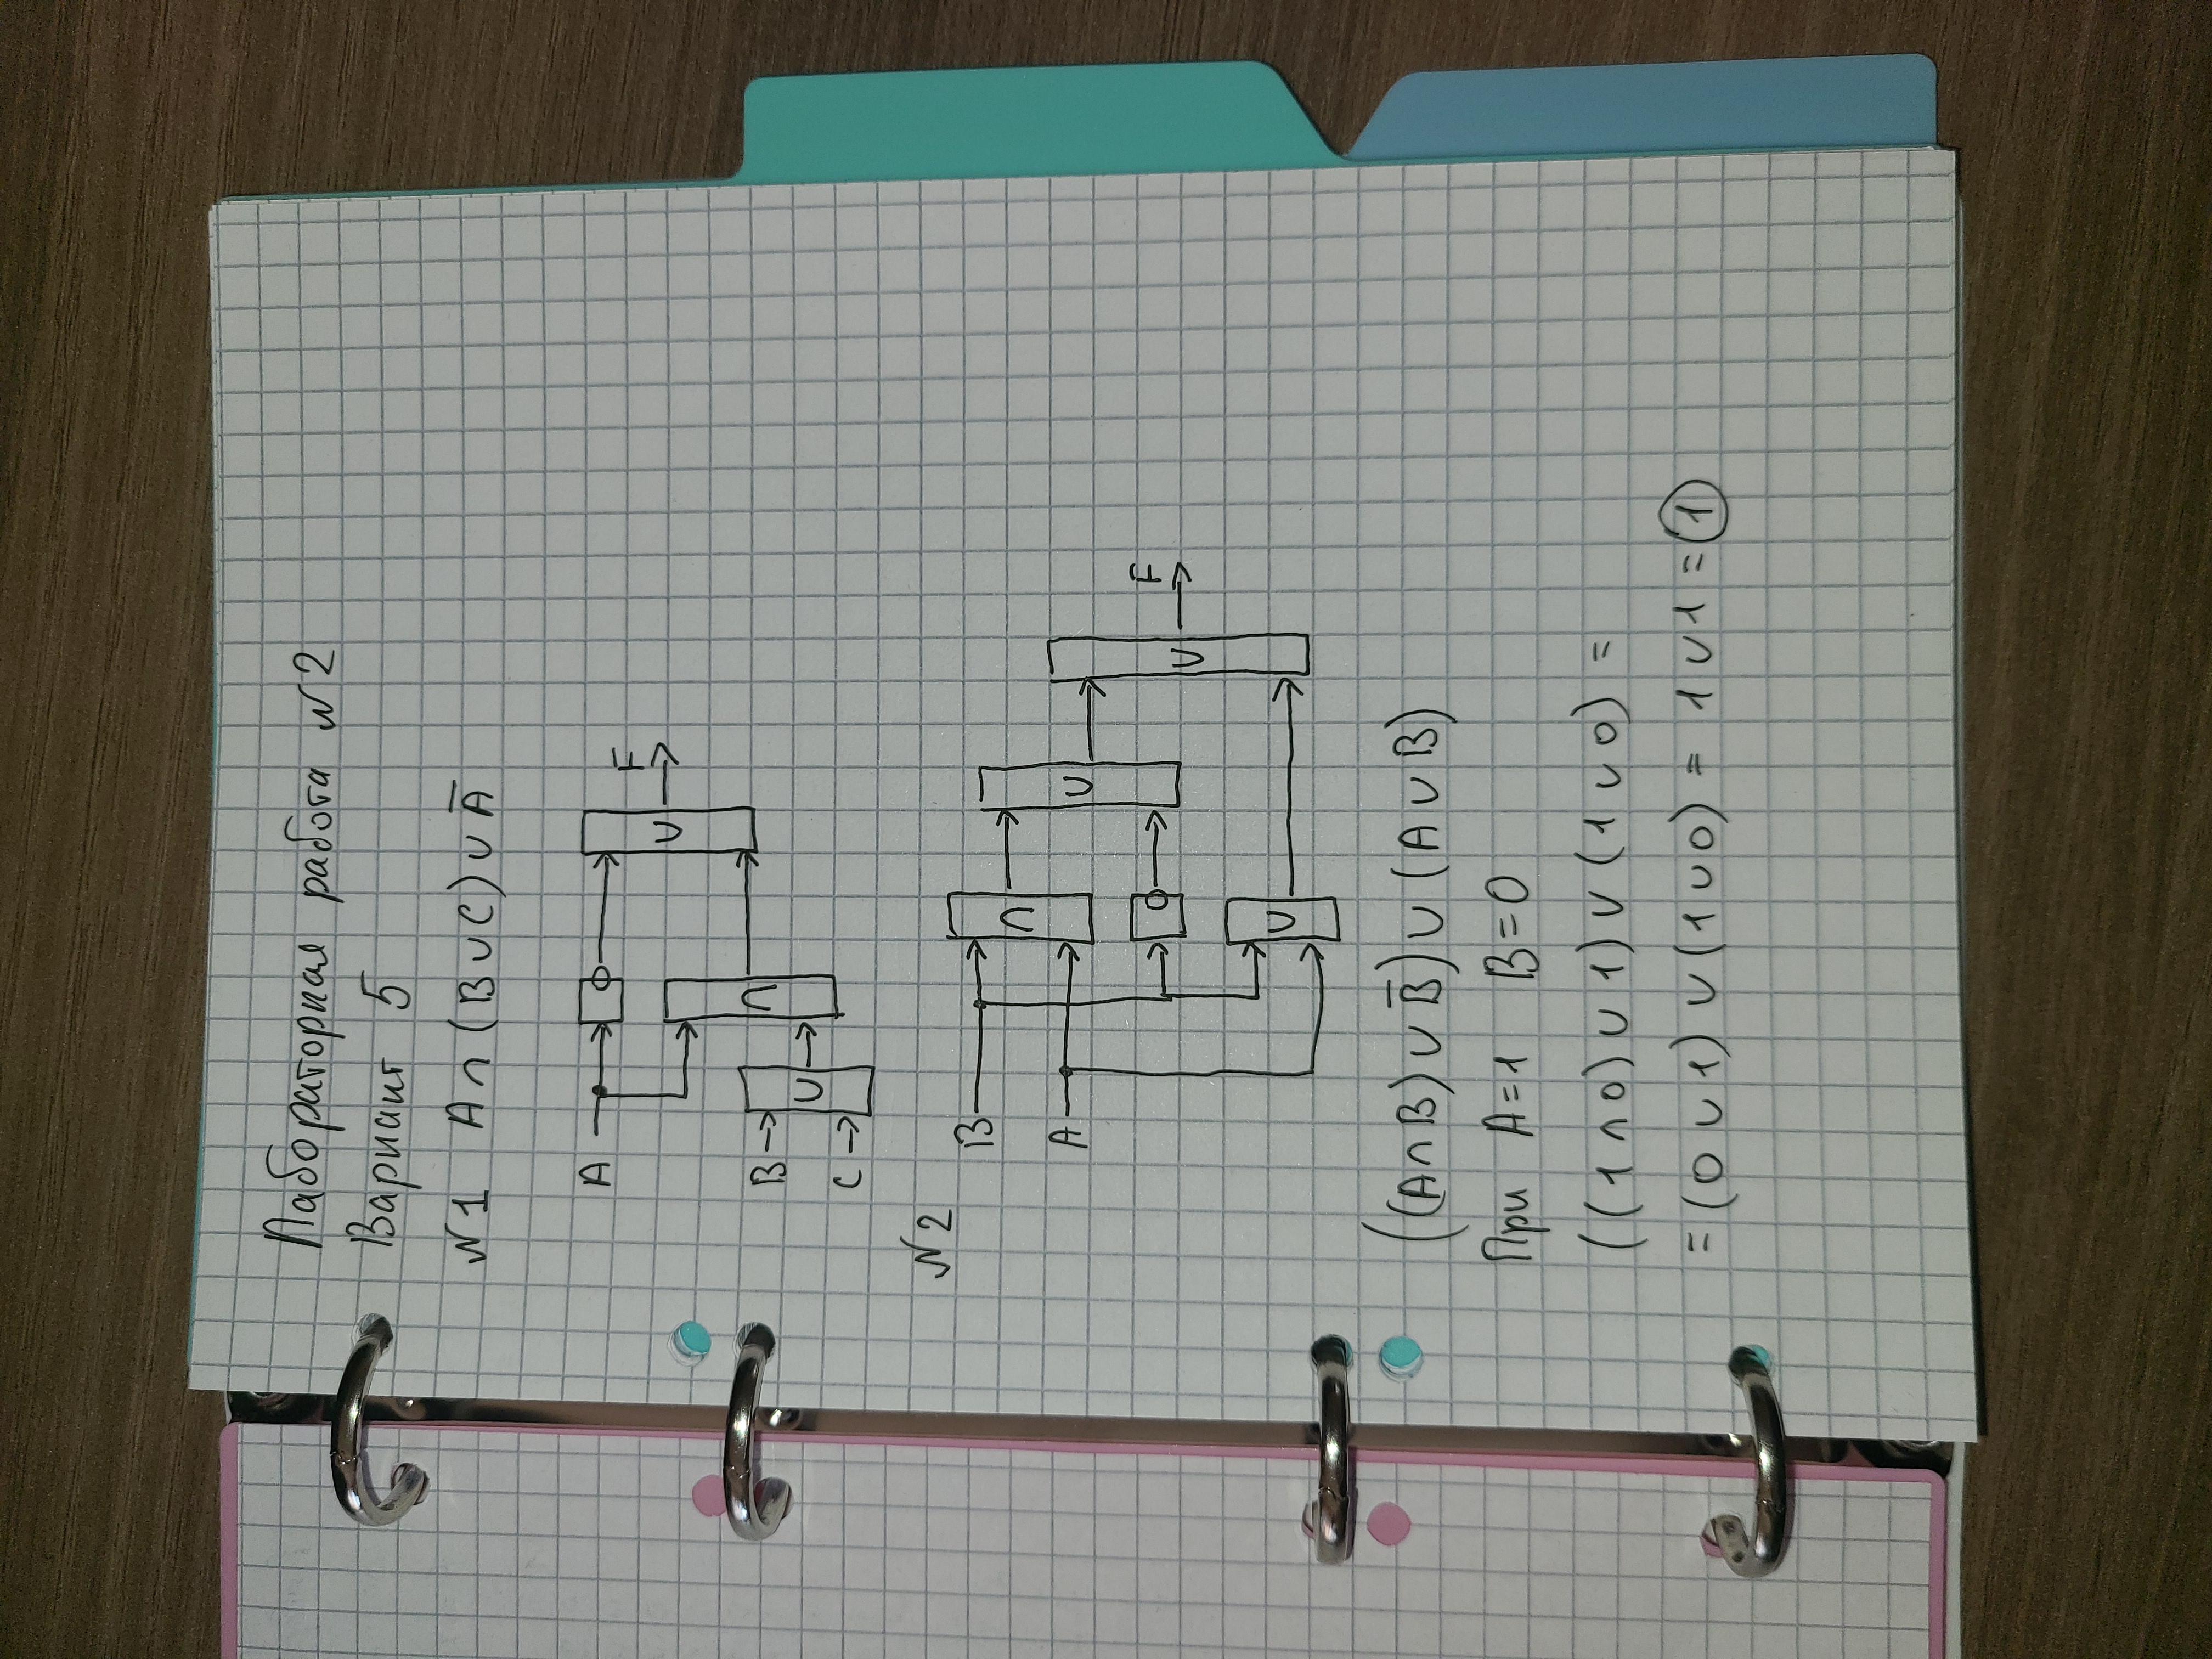 Лабораторная работа №2
Вариант 5
№1 A∩(B∪C)∪A̅
A
F
∪
B
∩
∪
C
№2
B
∩
A
∪
F
∪
∪
((A∩B)∪B̅)∪(A∪B)
При A=1 B=0
((1∩0)∪1)∪(1∪0) =
=(0∪1)∪(1∪0) = 1∪1=1